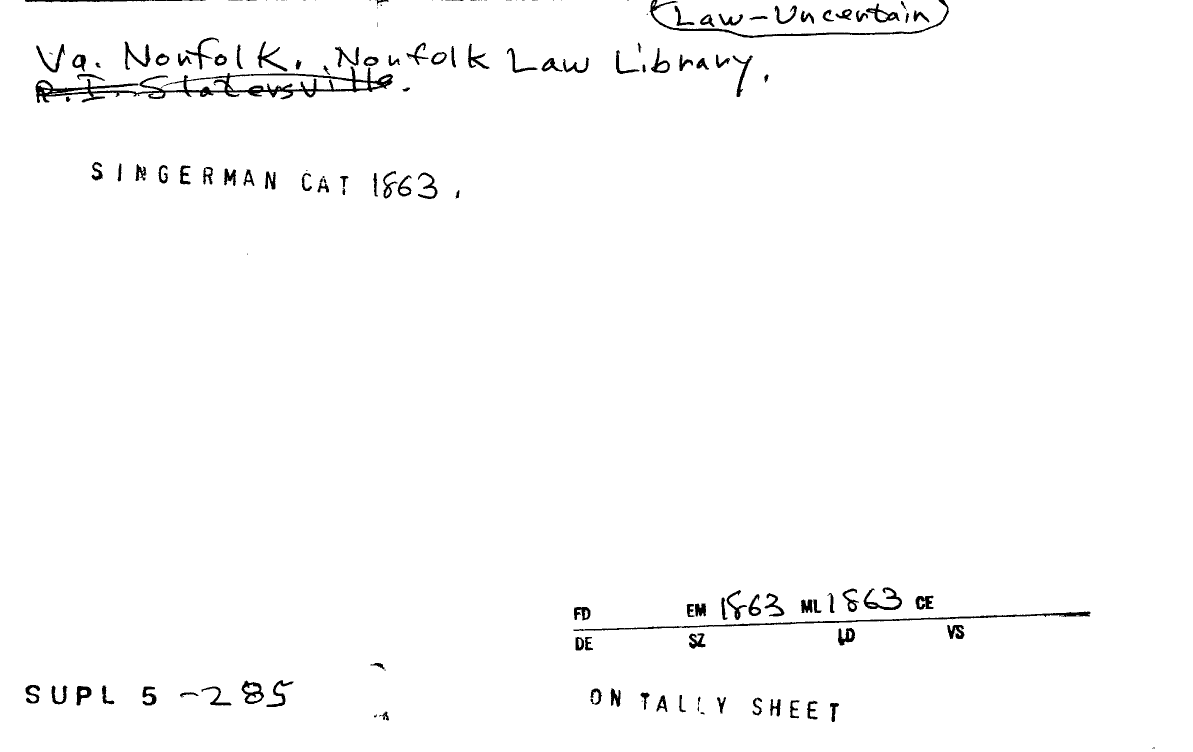 Law-Uncertain
Va. Norfolk. Norfolk Law Library.
R.I. Slatersville.
SINGERMAN CAT 1863.
FD EM 1863 ML 1863 CE
DE SZ LD VS
SUPL 5 -285
ON TALLY SHEET